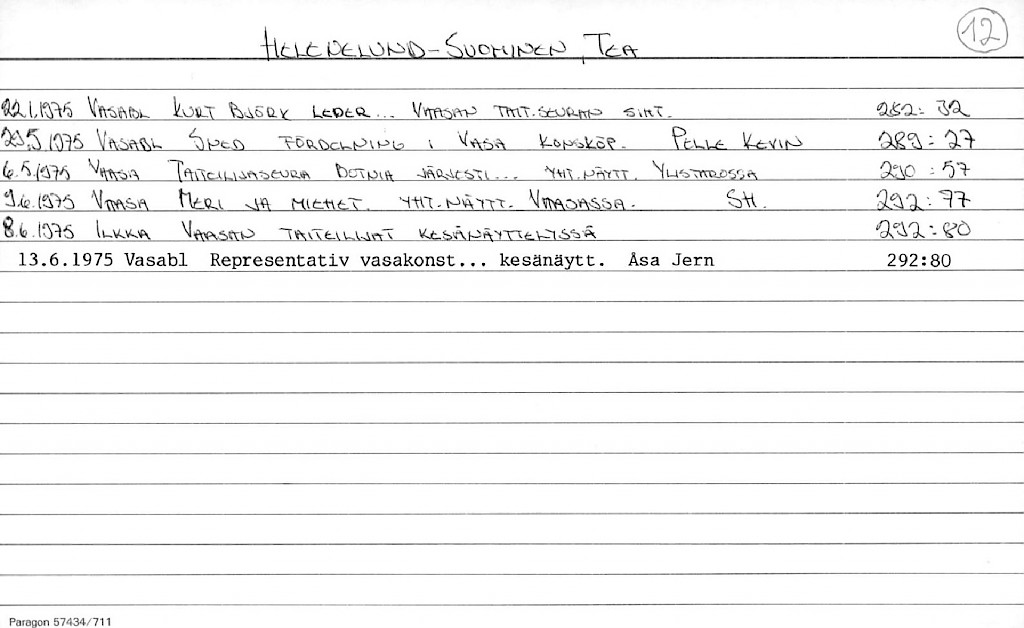 HELENELUND-SUOMINEN, TEA
12
22.1.1975 VASABL KURT BJÖRK LEDER... VAASAN TAIT.SEURAN SIHT. 282:32
29.5.1975 VASABL SNED FÖRDELNING i VASA KONSKÖP. PELLE KEVIN 289:27
6.5.1975 VAASA TAITEILIJASEURA BOTNIA JÄRJESTI... YHT.NÄYTT. YLISTAROSSA 290:57
9.6.1975 VAASA MERI JA MIEHET. YHT.NÄYTT. VAASASSA. SH. 292:77
8.6.1975 ILKKA VAASAN TAITEILIJAT KESÄNÄYTTELYSSÄ 292:80
13.6.1975 Vasabl Representativ vasakonst... kesänäytt. Åsa Jern 292:80
Paragon 57434/711